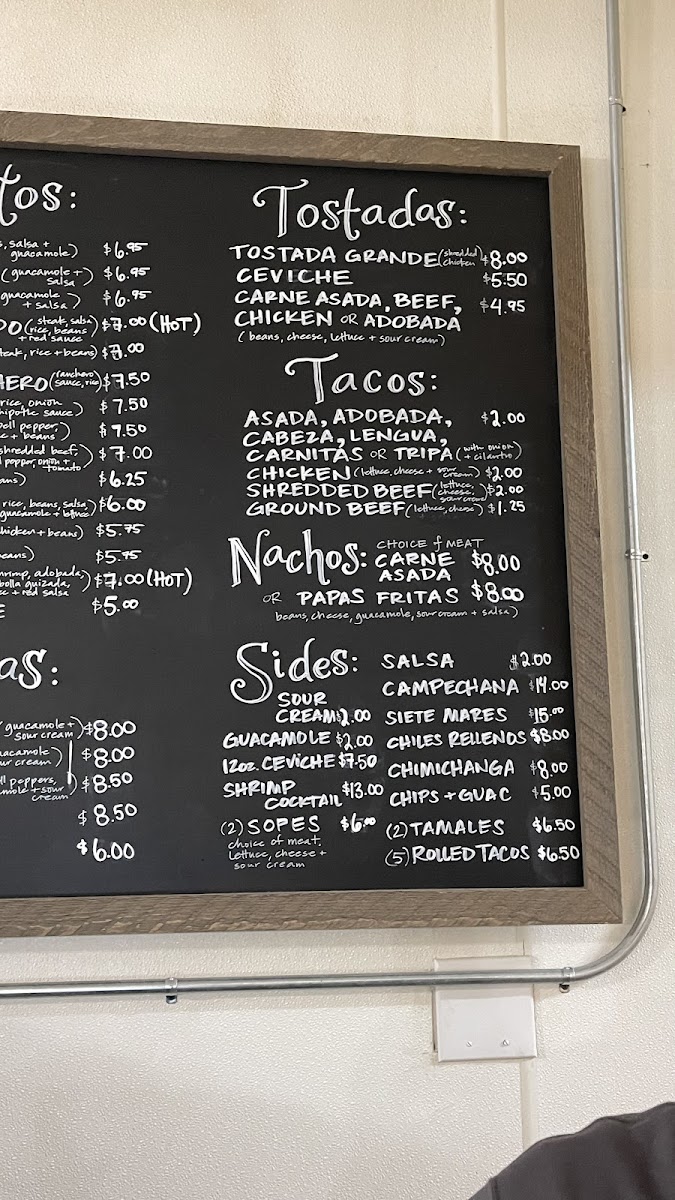 tos:
, salsa + $6.95
guacamole)
(guacamole + $6.95
salsa)
guacamole $6.95
+ salsa)
DO (steak, salsa $7.00 (HOT)
rice, beans
+ red sauce
teak, rice + beans) $7.00
HERO (ranchero $7.50
sauce, rice)
rice, onion $7.50
hipotle sauce)
bell pepper, $7.50
+ beans)
shredded beef, $7.00
pepper, onion +
tomato
ans) $6.25
rice, beans, salsa, $6.00
guacamole + lettuce)
chicken + beans) $5.75
beans) $5.75
hrimp, adobada, $7.00 (HOT)
bolla guizada,
+ red salsa
E $5.00
as:
(guacamole + $8.00
sour cream)
uacamole $8.00
ur cream)
ll peppers, $8.50
mole + sour
cream)
$8.50
$6.00
Tostadas:
TOSTADA GRANDE (shredded $8.00
chicken
CEVICHE $5.50
CARNE ASADA, BEEF, $4.95
CHICKEN OR ADOBADA
(beans, cheese, lettuce + sour cream)
Tacos:
ASADA, ADOBADA, $2.00
CABEZA, LENGUA,
CARNITAS OR TRIPA (with onion
+ cilantro)
CHICKEN (lettuce, cheese + sour $2.00
cream)
SHREDDED BEEF (lettuce, $2.00
cheese,
sour cream)
GROUND BEEF (lettuce, cheese) $1.25
Nachos: CHOICE of MEAT
CARNE $8.00
ASADA
OR PAPAS FRITAS $8.00
beans, cheese, guacamole, sour cream + salsa)
Sides:
SOUR
CREAM $2.00
GUACAMOLE $2.00
12oz. CEVICHE $7.50
SHRIMP $13.00
COCKTAIL
(2) SOPES $6.00
choice of meat,
lettuce, cheese +
sour cream
SALSA $2.00
CAMPECHANA $14.00
SIETE MARES $15.00
CHILES RELLENOS $8.00
CHIMICHANGA $8.00
CHIPS + GUAC $5.00
(2) TAMALES $6.50
(5) ROLLED TACOS $6.50